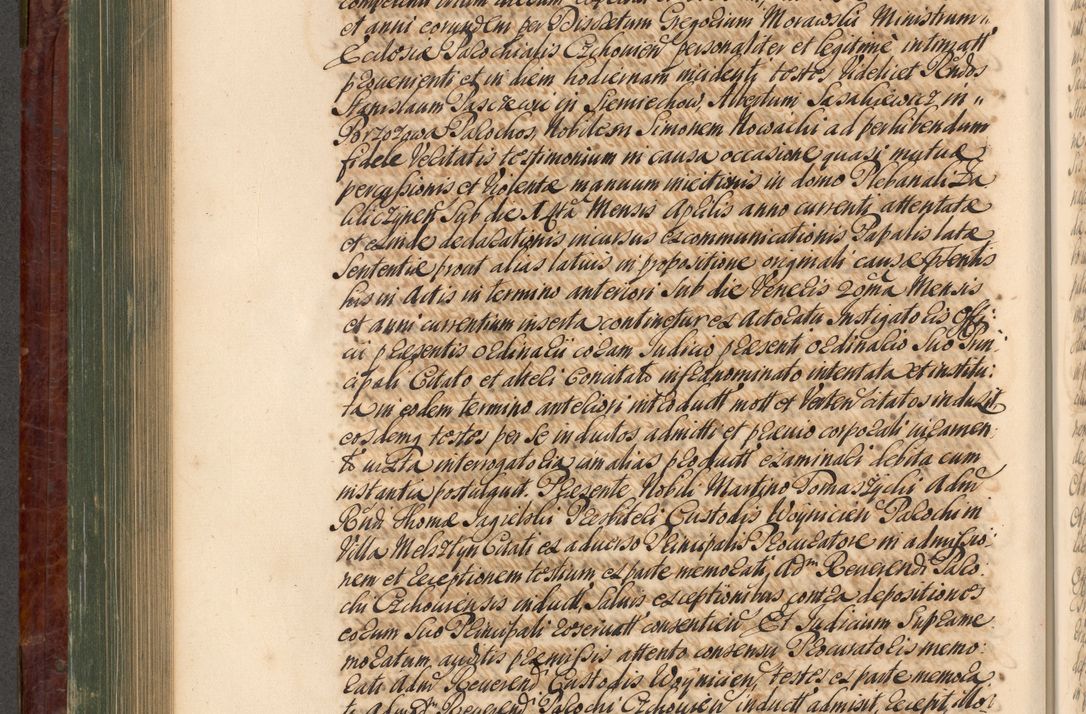 et anni eorundem per Discretum Gregorium Morawski Ministrum
Ecclesiæ Parochialis Czchouien personaliter et legitime intimatt
peruenienti et in diem hodiernam incidenti, testes Videlicet Rndos
Stanislaum Paszewic in Siemiechow, Albertum Sasakiewicz in
Borzozowa Parochos, Nobilem Simonem Nowacki ad perhibendum
fidele Veritatis testimonium in causa occasione quasi mutuæ
percussionis et Violentæ manuum iniectionis in domo Plebanali Za
kliczynen Sub die Mensis Aprilis anno currenti attentatæ
et exinde declarationis incursus excommunicationis Papalis latæ
Sententiæ prout alias latius in propositione originali causæ
his in Actis in termino anteriori Sub die Veneris 20ma Mensis
et anni currentium inserta continetur ex Actoratu Instigatoris Offi:
cii præsentis ordinarii coram Iudicio præsenti ordinario Suo Prin:
cipali Citato et alteri Concitato infranominato intentata et institu:
ta in eodem termino anteriori introductt nott et Verten citatos induxit
eosdemq testes per se inductos admitti et præuio corporali iuramen:
to iuxta interrogatoria in alias productt examinari debita cum
instantia postulauit. Præsente Nobili Martino Tomaszycki Adm
Rndi Thomæ Jagielski Presbiteri Custodis Woynicien Parochi in
Villa Melsztyn Citati ex aduerso Principalis Procuratore in admissio:
nem et receptionem testium ex parte memorati Adm Reuerendi Paro:
chi Czchouiensis inductt, Saluis exceptionibus contra depositiones
eorum Suo Principali reseruatt consentien Et Iudicium Supramemo:
moratum, auditis præmissis attento consensu Procuratoris memo:
rati Adm Reuerendi Custodis Woynicien, testes ex parte memora
ti Adm Reuerendi Parochi Czchouien inductt admisit, recepit,